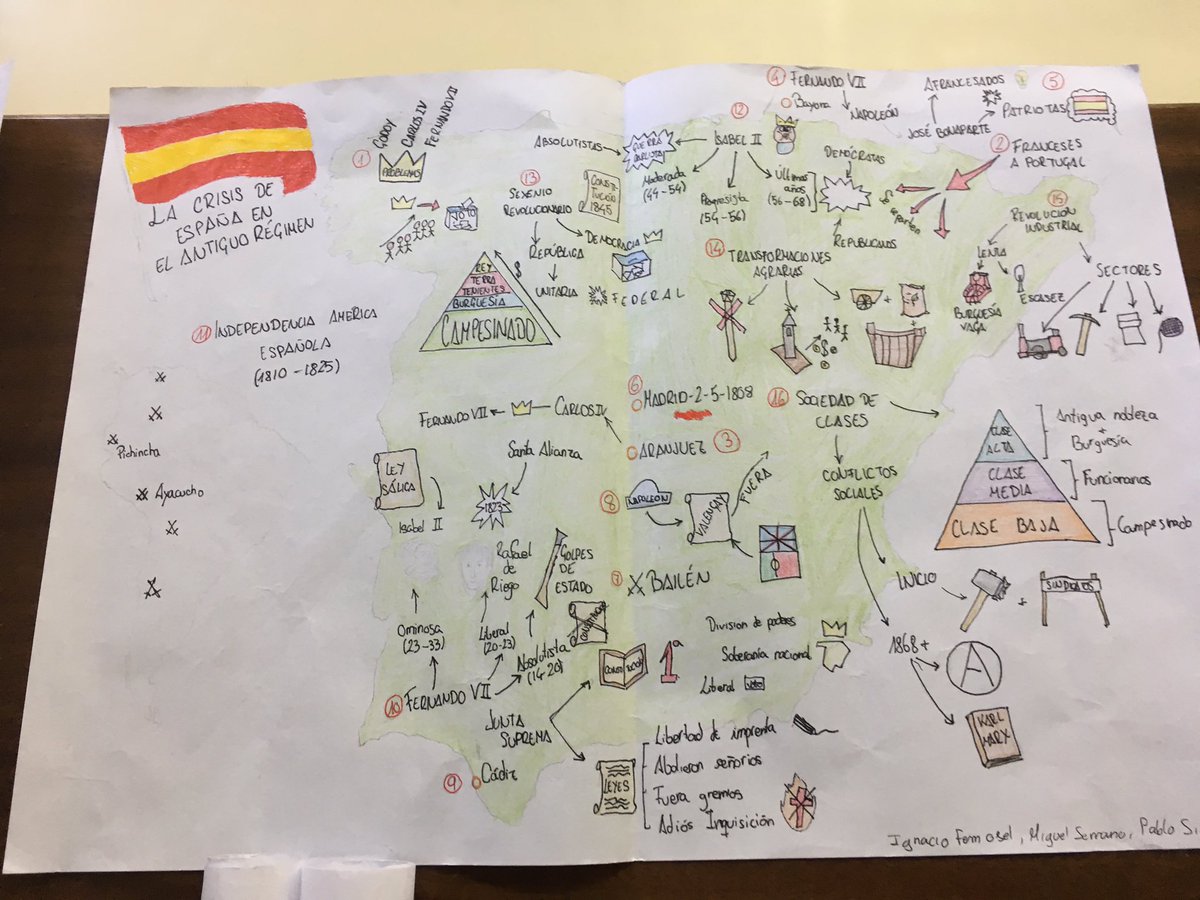 LA CRISIS DE
ESPAÑA EN
EL ANTIGUO RÉGIMEN
1
GODOY
CARLOS IV
FERNANDO VII
PROBLEMAS
13
SEXENIO
REVOLUCIONARIO
CONSTI
TUCIÓN
1845
REPÚBLICA
DEMOCRACIA
UNITARIA
FEDERAL
$
REY
TERRA
TENIENTES
BURGUESÍA
CAMPESINADO
ABSOLUTISTAS
GUERRA
CARLISTA
12
ISABEL II
Moderada
(44-54)
Progresista
(54-56)
Últimos
años
(56-68)
DEMÓCRATAS
REPUBLICANOS
4
FERNANDO VII
Bayona
NAPOLEÓN
AFRANCESADOS
5
PATRIOTAS
JOSÉ BONAPARTE
2
FRANCESES
A PORTUGAL
15
REVOLUCIÓN
INDUSTRIAL
LENTA
ESCASEZ
BURGUESÍA
VAGA
SECTORES
14
TRANSFORMACIONES
AGRARIAS
+
$
11
INDEPENDENCIA AMERICA
ESPAÑOLA
(1810-1825)
Pichincha
Ayacucho
6
MADRID-2-5-1808
3
ARANJUEZ
CARLOS IV
FERNANDO VII
LEY
SÁLICA
Isabel II
Santa Alianza
1823
Rafael
de
Riego
GOLPES
DE
ESTADO
Ominosa
(23-33)
Liberal
(20-23)
Absolutista
(14-20)
10
FERNANDO VII
8
NAPOLEÓN
VALENÇAY
FUERA
7
BAILÉN
16
SOCIEDAD DE
CLASES
CONFLICTOS
SOCIALES
CLASE
ALTA
CLASE
MEDIA
CLASE BAJA
Antigua nobleza
+
Burguesía
Funcionarios
Campesinado
INICIO
+
SINDICATOS
1868+
A
KARL
MARX
Division de poderes
Soberanía nacional
Liberal
VOTO
1ª
JUNTA
SUPREMA
9
Cádiz
LEYES
Libertad de imprenta
Abolieron señorios
Fuera gremios
Adiós Inquisición
Ignacio Fermosel, Miguel Serrano, Pablo